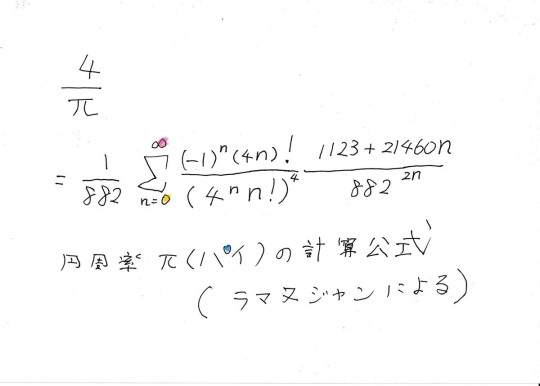 4/π
= 1/882 ∞Σn=0 (-1)^n (4n)!/(4^n n!)^4 1123+21460n/882^2n
円周率 π(パイ)の計算公式
(ラマヌジャンによる)